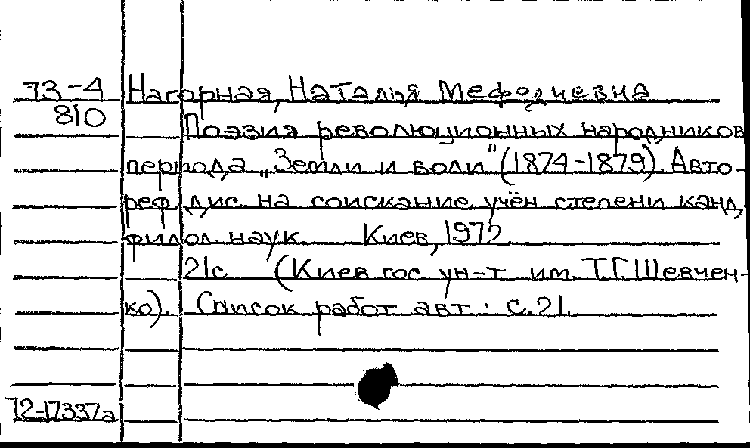 73-4 Нагорная, Наталья Мефодиевна
810
Поэзия революционных народников
периода „Земли и воли" (1874-1879). Авто-
реф. дис. на соискание учён. степени канд.
филол. наук. Киев, 1972
21с. (Киев. гос. ун-т им. Т.Г. Шевчен-
ко). Список работ авт.: с. 21.
72-17337а